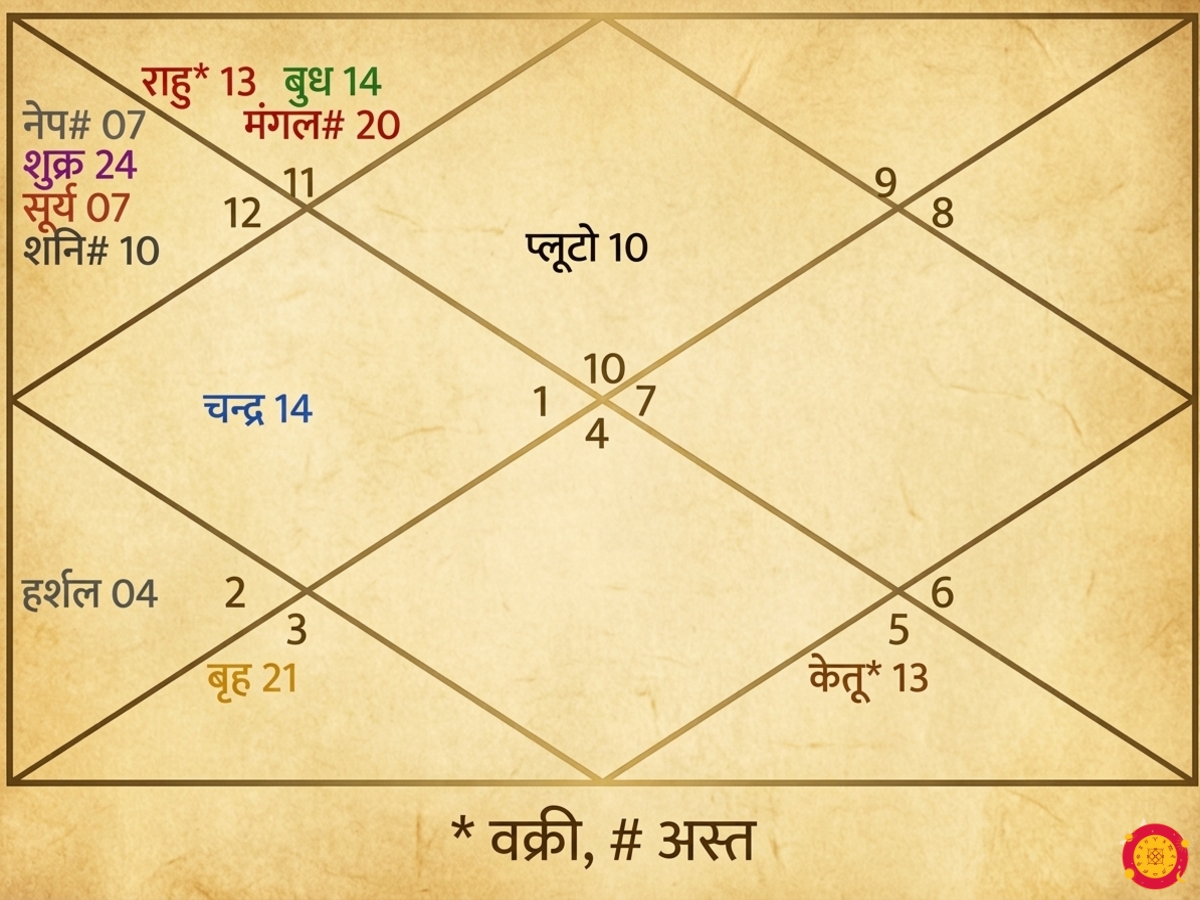 राहु* 13 बुध 14
नेप# 07 मंगल# 20
शुक्र 24
सूर्य 07
शनि# 10
11
12
9
8
प्लूटो 10
10
1 7
4
चन्द्र 14
हर्शल 04 2
3
बृह 21
6
5
केतू* 13
* वक्री, # अस्त